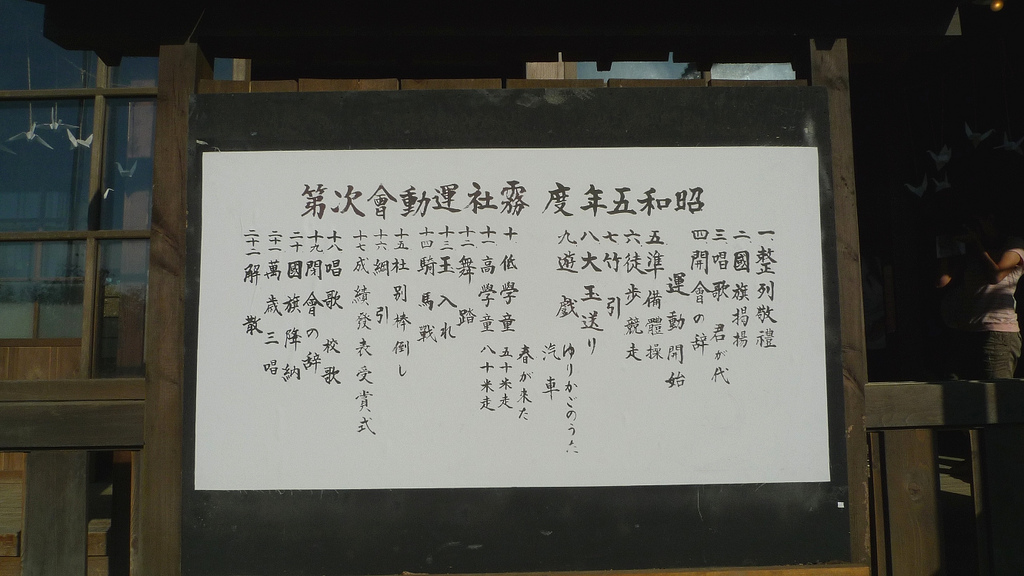 昭和五年度 霧社運動會次第
一、整列敬禮
二、國旗揭揚
三、唱歌 君が代
四、開會の辞
運動開始
五、準備體操
六、徒步競走
七、竹引
八、大玉送り
九、遊戲 ゆりかごのうた
汽車
春が来た
十、低學童 五十米走
十一、高學童 八十米走
十二、舞踏
十三、玉入れ
十四、騎馬戰
十五、社別棒倒し
十六、綱引
十七、成績發表受賞式
十八、唱歌 校歌
十九、閉會の辞
二十、國旗降納
二十一、萬歲三唱
二十二、解散